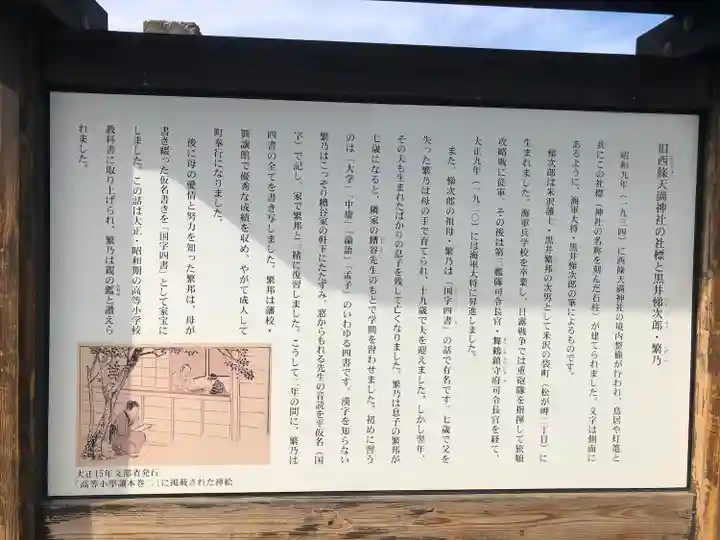 旧西條天満神社の社標と黒井悌次郎・繁乃
昭和九年（一九三四）に西條天満神社の境内整備が行われ、鳥居や灯篭と
共にこの社標（神社の名称を刻んだ石柱）が建てられました。文字は側面に
あるように、海軍大将・黒井悌次郎の筆によるものです。
悌次郎は米沢藩士・黒井繁邦の次男として米沢の袋町（松が岬二丁目）に
生まれました。海軍兵学校を卒業し、日露戦争では重砲隊を指揮して旅順
攻略戦に従軍、その後は第三艦隊司令長官・舞鶴鎮守府司令長官を経て、
大正九年（一九二〇）には海軍大将に昇進しました。
また、悌次郎の祖母・繁乃は「国字四書」の話で有名です。七歳で父を
失った繁乃は母の手で育てられ、十九歳で夫を迎えました。しかし翌年、
その夫も生まれたばかりの息子を残して亡くなりました。繁乃は息子の繁邦が
七歳になると、隣家の糟谷先生のもとで学問を習わせました。初めに習う
のは「大学」「中庸」「論語」「孟子」のいわゆる四書です。漢字を知らない
繁乃はこっそり糟谷家の軒下にたたずみ、窓からもれる先生の音読を平仮名（国
字）で記し、家で繁邦と一緒に復習しました。こうして二年の間に、繁乃は
四書の全てを書き写しました。繁邦は藩校・
興譲館で優秀な成績を収め、やがて成人して
町奉行になりました。
後に母の愛情と努力を知った繁邦は、母が
書き綴った仮名書きを「国字四書」として家宝に
しました。この話は大正・昭和期の高等小学校
教科書に取り上げられ、繁乃は親の鑑と讃えら
れました。
大正15年文部省発行
「高等小學讀本巻二」に掲載された挿絵